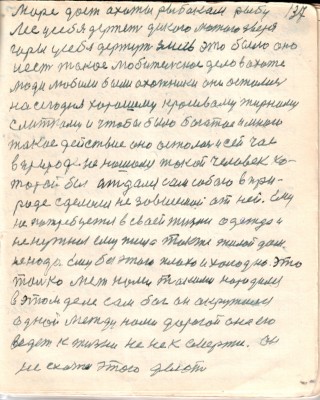 Море дает охоты рыбакам рыбу 137
Лес у себя держит дикого лютого зверя
горы у себя держут змеев это было оно
есть такое любительское дело в охоте
люди любили были охотники они остались
на сегодня хорошему красивому жирному
и чтобы было богатое и много
такое действие оно осталось и сей час
в природ не нашол такой человек ко-
торой бы отдался сам собою в при-
роде сделался не зависимой от ней. Ему
не потребуется в своей жизни одежда и
не нужна ему пища также жилой дом.
некогда ему бы этого плохо и холодно. Это
только меж ними такими народился
в этом деле сам бог он окружился
одной между ними дорогой она его
ведет к жизни не как смерти. Он
не скажи этого делоти